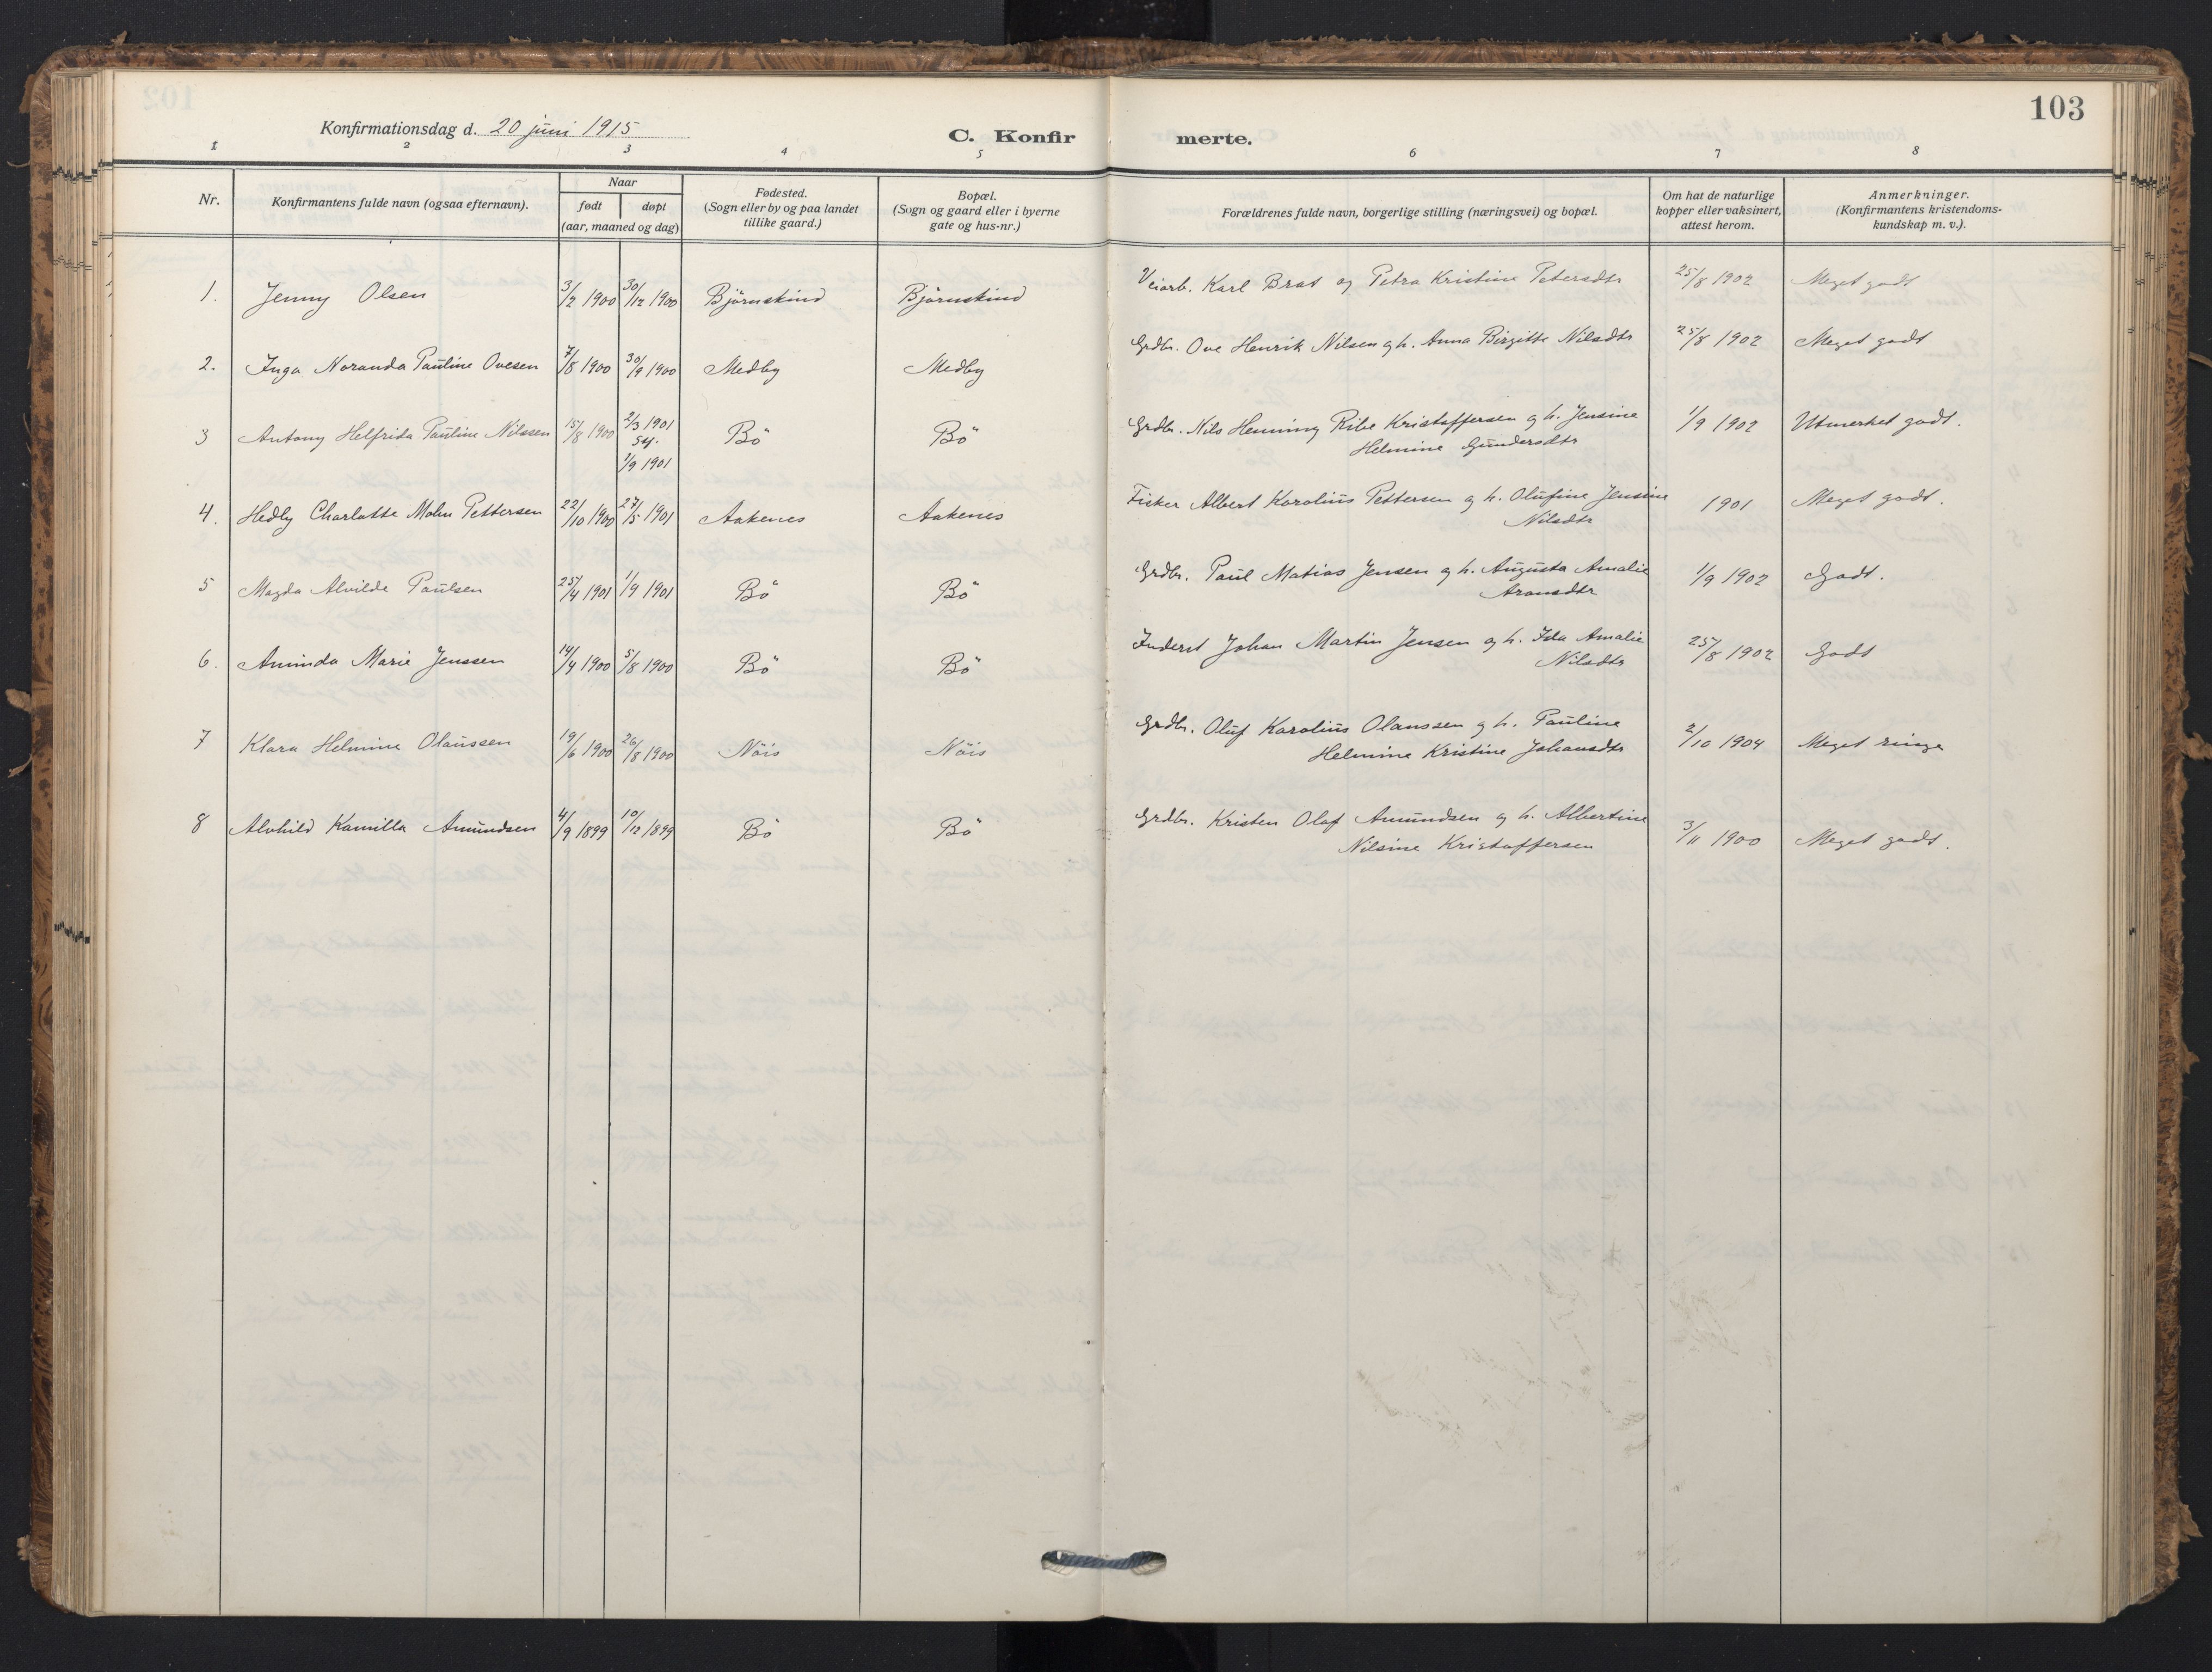 103
Konfirmationsdag d. 20 juni 1915
C. Konfir merte.
1 2 3 4 5 6 7 8
Nr.
Konfirmantens fulde navn (ogsaa efternavn).
Naar
født døpt
(aar, maaned og dag)
Fødested.
(Sogn eller by og paa landet
tillike gaard.)
Bopæl.
(Sogn og gaard eller i byerne
gate og hus-nr.)
Forældrenes fulde navn, borgerlige stilling (næringsvei) og bopæl.
Om hat de naturlige
kopper eller vaksinert,
attest herom.
Anmerkninger.
(Konfirmantens kristendoms-
kundskap m. v.).
1. Jenny Olsen 3/2 1900 30/12 1900 Björnskind Björnskind Veiarb. Karl Brat og Petra Kristine Petersdtr 25/8 1902 Meget godt
2. Inga Noranda Pauline Ovesen 7/8 1900 30/9 1900 Medby Medby Grdbr. Ove Henrik Nilsen og h. Anna Birgitte Nilsdtr 25/8 1902 Meget godt
3 Antony Helfrida Pauline Nilssen 15/8 1900 2/3 1901 Bö Bö Grdbr. Nils Henning Ribe Kristoffersen og h. Jensine 1/9 1902 Utmerket godt.
st. Helmine Gundersdtr
1/9 1901
4. Hedly Charlotte Malm Pettersen 22/10 1900 27/5 1901 Aakenes Aakenes Fisker Albert Karolius Pettersen og h. Olufine Jensine 1901 Meget godt.
Nilsdtr
5 Magda Alvilde Paulsen 25/4 1901 1/9 1901 Bö Bö Grdbr. Paul Matias Jensen og h. Augusta Amalie 1/9 1902 Godt.
Aronsdtr
6. Aminda Marie Jenssen 14/4 1900 5/8 1900 Bö Bö Inderst Johan Martin Jensen og h. Ida Amalie 25/8 1902 Godt
Nilsdtr
7 Klara Helmine Olaussen 19/6 1900 26/8 1900 Nöis Nöis Grdbr. Oluf Karolius Olaussen og h. Pauline 2/10 1904 Meget ringe
Helmine Kristine Johansdtr
8 Alvhild Kamilla Amundsen 4/9 1899 10/12 1899 Bö Bö Grdbr. Kristen Olaf Amundsen og h. Albertine 3/11 1900 Meget godt.
Nilsine Kristoffersen